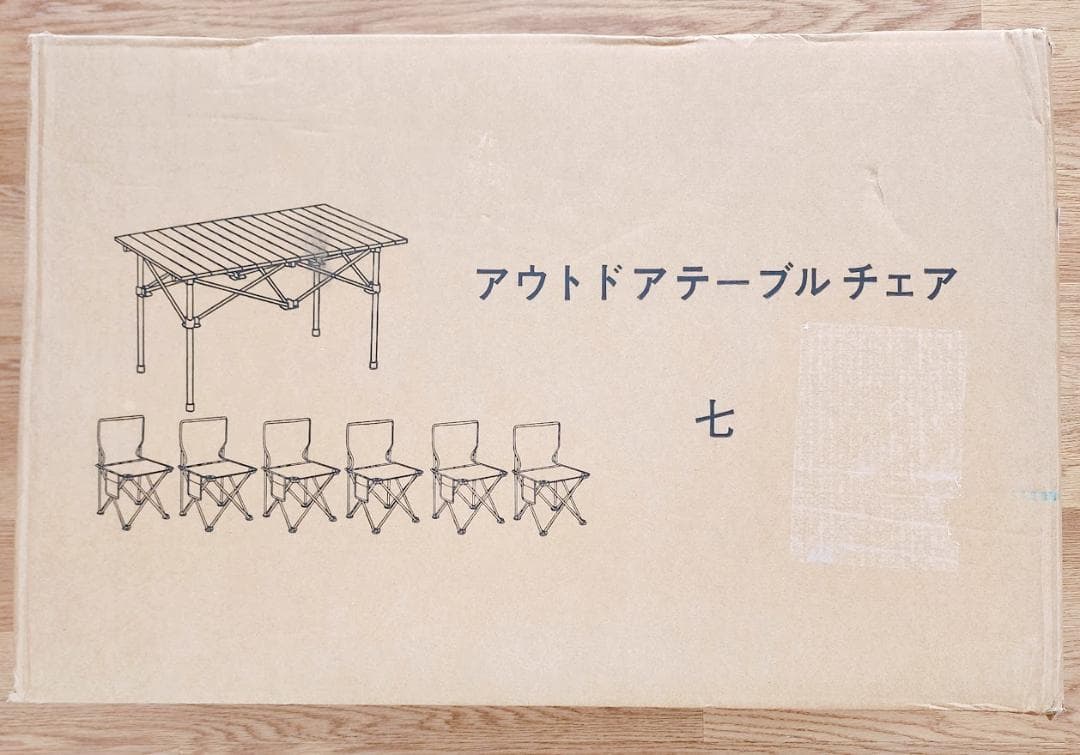 アウトドアテーブル チェア
七